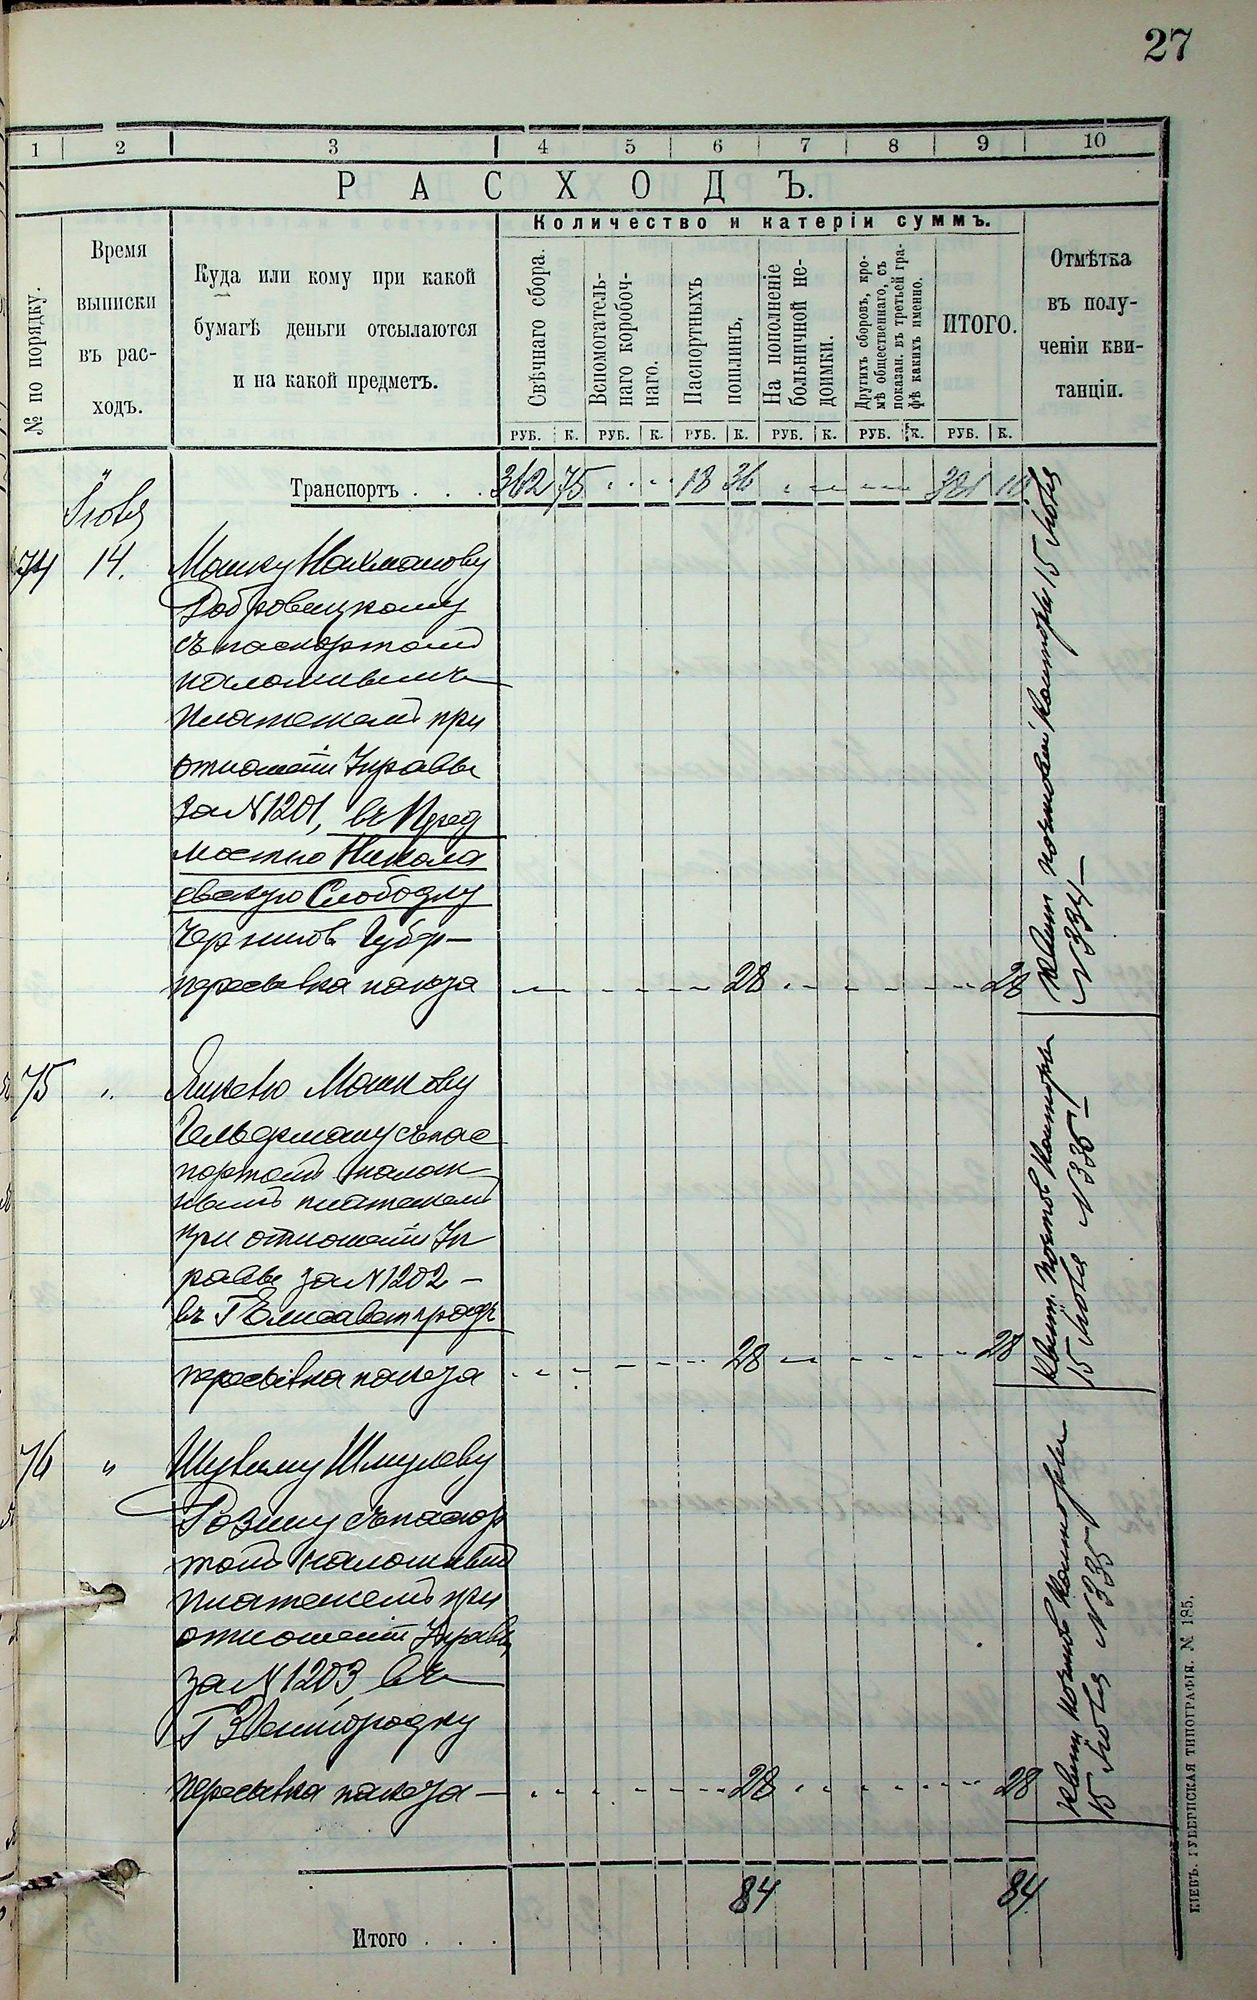 27
1 2 3 4 5 6 7 8 9 10
РАСХОДЪ.
№ по порядку.
Время
выписки
въ рас-
ходъ.
Куда или кому при какой
бумагѣ деньги отсылаются
и на какой предметъ.
Количество и катеріи суммъ.
Свѣчнаго сбора.
Вспомогатель-
наго коробоч-
наго.
Паспортныхъ
пошлинъ.
На пополненіе
больничной не-
доимки.
Другихъ сборовъ, кро-
мѣ общественнаго, съ
показан. въ третьей гра-
фѣ какихъ именно.
ИТОГО.
Отмѣтка
въ полу-
ченіи кви-
танціи.
РУБ. К. РУБ. К. РУБ. К. РУБ. К. РУБ. К. РУБ. К.
Транспортъ . . . 362 75 18 36 381 11
Іюля
74 14. Мошку Нахманову
Добровецкому
съ паспортомъ
наложеннымъ
платежемъ при
отношеніи Управы
за N 1201, въ Пред
мостно Никола
евскую Слободку
Чернигов Губер—
пересылка пакета 28 28
Квит почтовой Конторы 15 Іюля
N 334—
75 " Янкелю Мошкову
Гельдерману съ пас
портомъ налож
нымъ платежемъ
при отношеніи Уп
равы за N 1202 —
въ Г Елисаветградъ
пересылка пакета 28 28
Квит. почтов Конторы
15 Іюля N 336—
76 " Шулиму Шмулеву
Розину съ паспор
томъ наложным
платежемъ при
отношеніи Управы
за N 1203 въ
Г Звенигородку
пересылка пакета — 28 28
Квит почтов Конторы
15 Іюля N 335—
84 84
Итого . . .
КІЕВЪ. ГУБЕРНСКАЯ ТИПОГРАФІЯ. № 185.